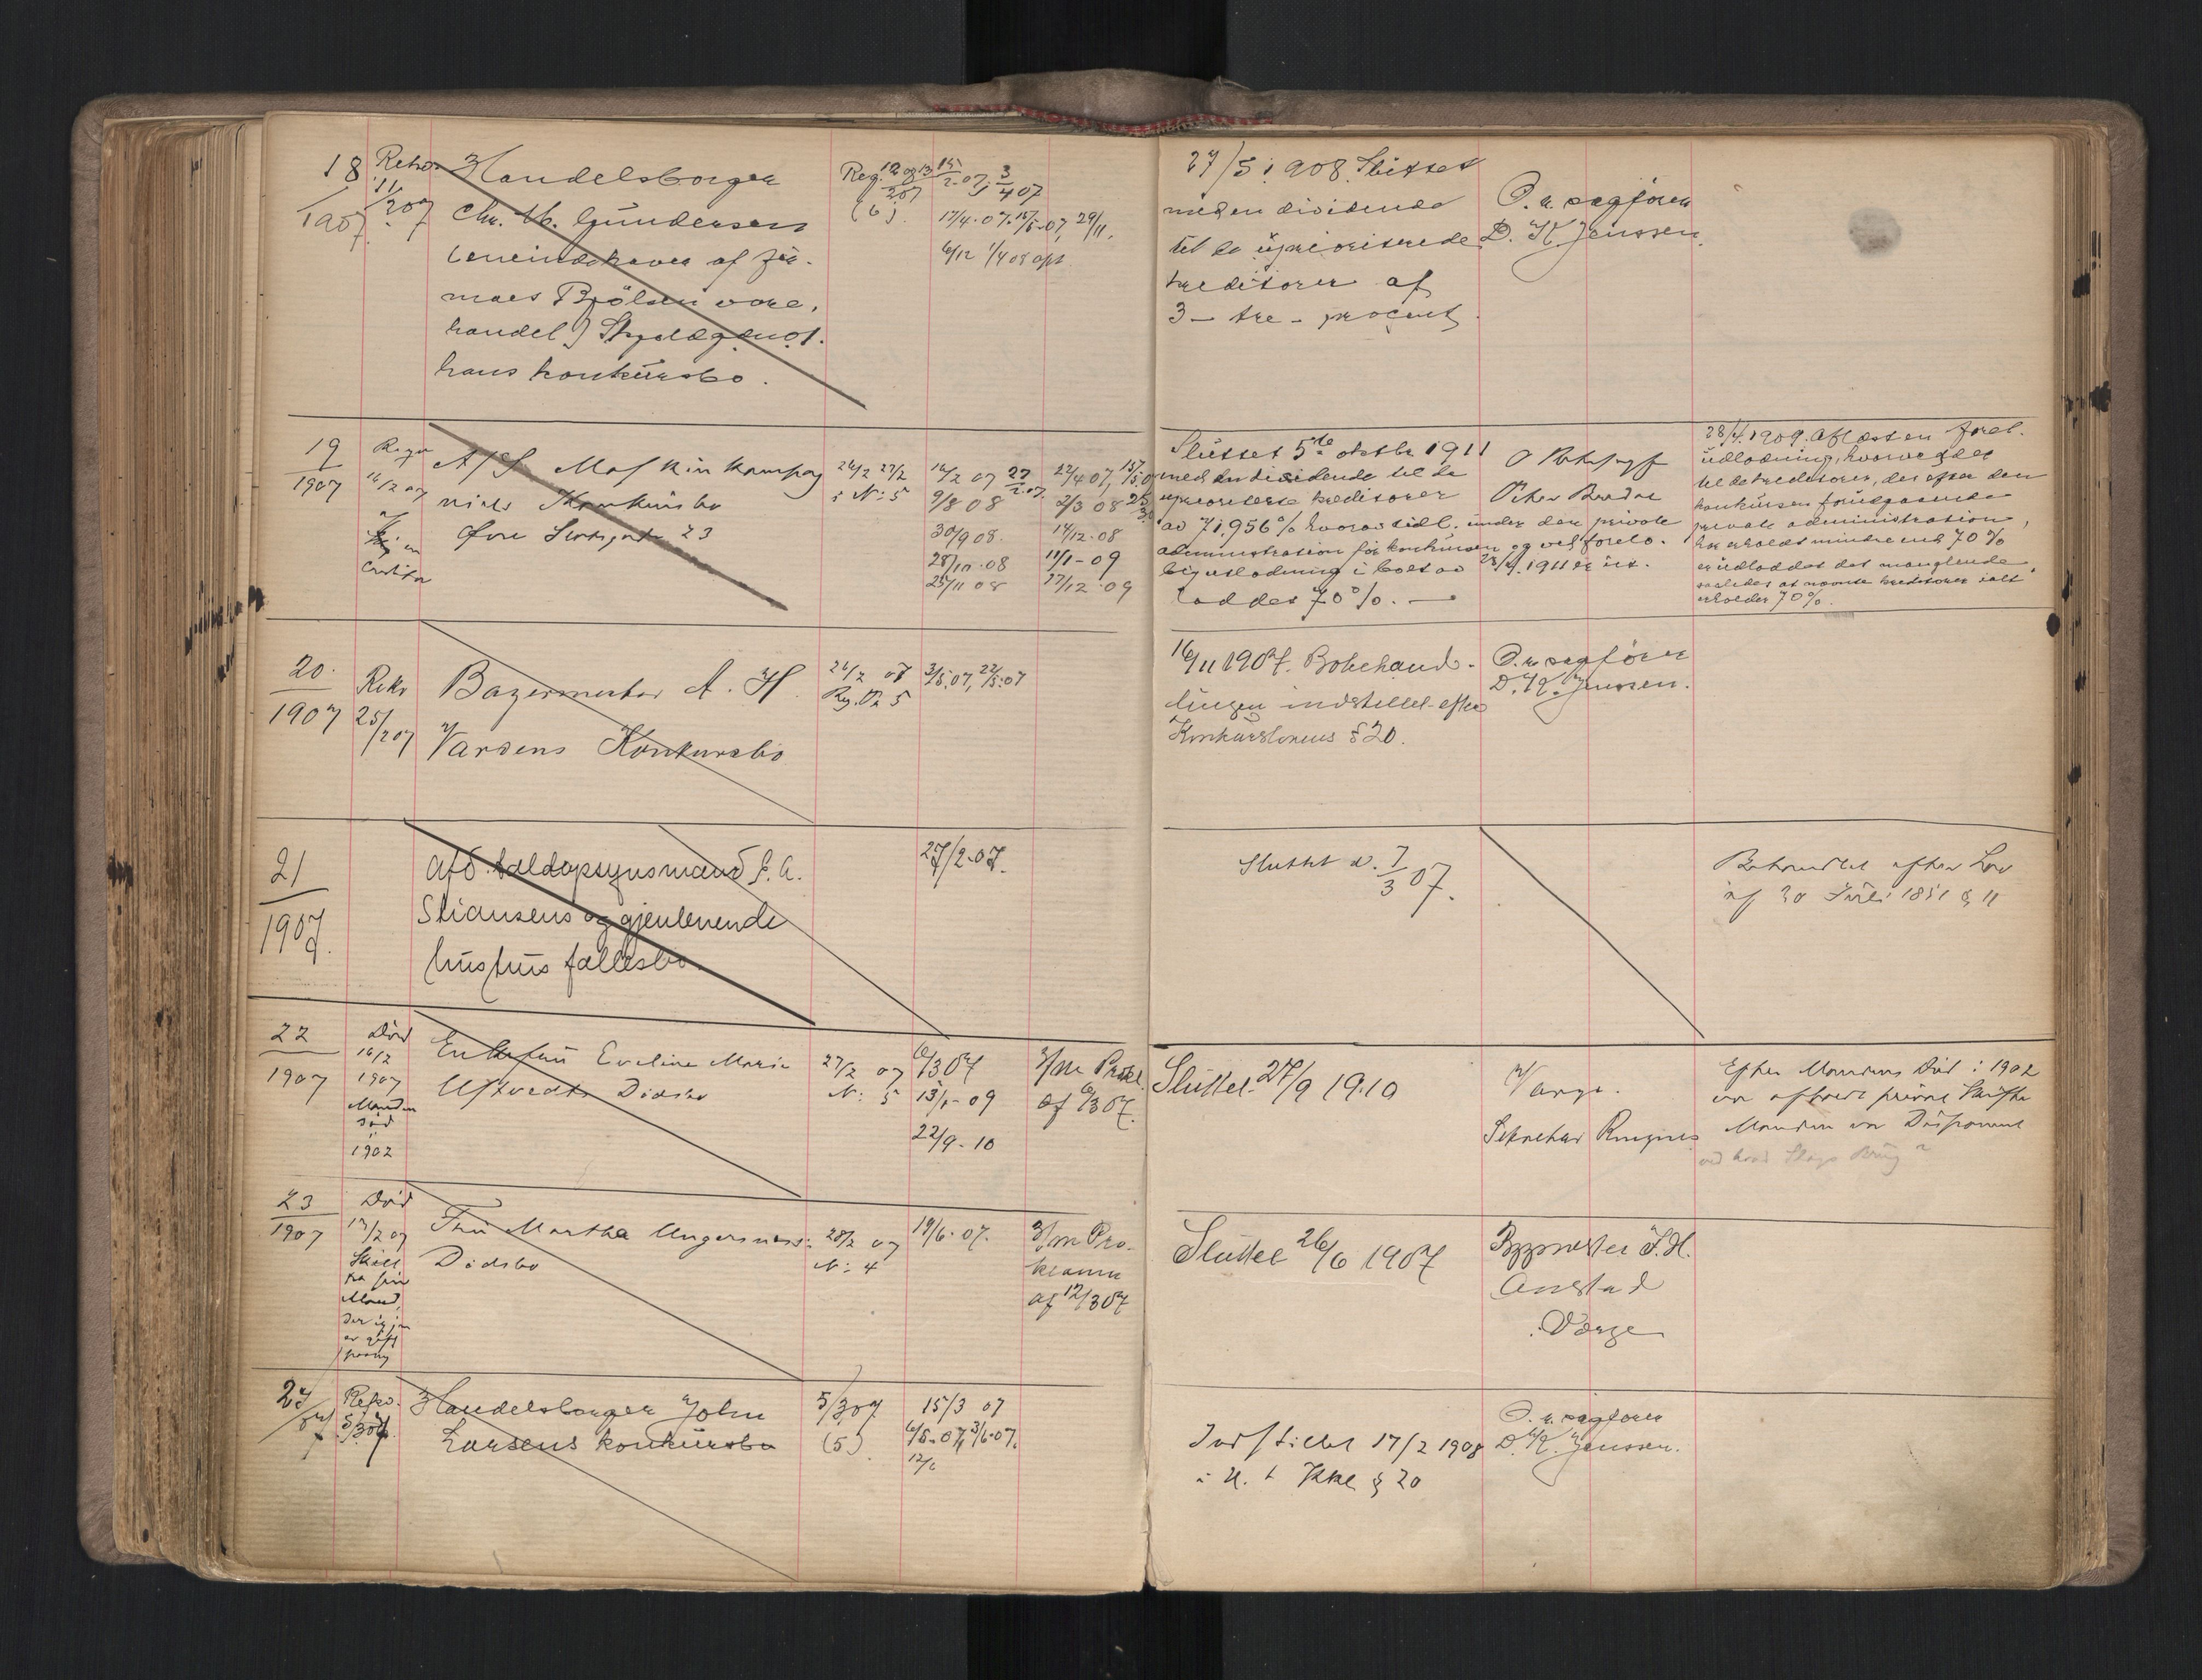 18
1907
Handelsborger
Chr. M. Gundersen
(eneindehaver af fir-
maet Bjölsen vare,
handel) Skyldgænst.
hans konkursbo.
Reg. 12 og 13
(6)
17/4.07
6/12 1/4 08
27/5 1908 Sluttet
med en dividende
til de üprioriterede
kreditorer af
3 - tre - procent
O. r. sagförer
D. K. Jenssen.
19
1907
A/S Maskinkompag
niets Konkursbo
Øvre Slotsgade 23
9/8 08
30/9 08.
28/10.08
25/11 08
22/4 07,
2/3 08
14/12.08
11/1-09
17/12.09
Sluttet 5te oktbr 1911
med en dividende til de
uprioriterte kreditorer
av 71,956% hvorav tidl. under den private
administration för konkursen og ved forelö-
big utlodning i boet av 28/4.1911 er ut-
loddet 70%. —
28/4 1909. Aflæst en forel.
üdlodning, hvorved der
til de kreditorer, der efter den
konkursen forudgaaende
private administration,
har erholdt mindre end 70%
er üdloddet det manglende,
saaledes at nævnte kreditorer ialt
erholder 70%.
20.
1907
Rekv
25/2 07
Bagermester A. H.
Vardens Konkursbo
26/2 07
Reg. No 5
3/5.07, 22/5.07
16/11 1907. Bobehand-
lingen indstillet efter
Konkurslovens § 20.
O. r. sagförer
D. K. Jenssen.
21
1907.
Afd. toldopsynsmand
Stiansens og gjenlevende
hustrus fællesbo.
27/2.07.
Sluttet d. 7/3 07.
Behandlet efter Lov
af 30 Juli 1851 § 11
22
1907
Död
16/2
1907
Manden
död
i
1902
Enkefru Eveline Marie
Uftvedts Dödsbo
27/2 07
N: 5
6/3 07
13/1-09
22/9-10
3/m Prokl.
af 6/3 07.
Sluttet 27/9 1910
Værge.
Sekretær Ringnes
Efter Mandens Död i 1902
Manden var Disponent
23
1907
Död
17/2 07
Skilt
fra sin
Mand,
der igjen
er gift
Fru Martha Ungersness:
Dödsbo
28/2 07
N: 4
19/6.07.
3/m Pro-
klama
af 12/3 07
Sluttet 26/6 1907
Bygmester J. H.
Anstad
Værge
24
07
Rekv.
5/3 07.
Handelsborger John
Larsens konkursbo
5/3 07
(5)
15/3 07
6/5-07, 3/6-07.
12/6
Indstillet 17/2 1908
i H. t Kkl § 20
O. r. sagförer
D. K. Jenssen.